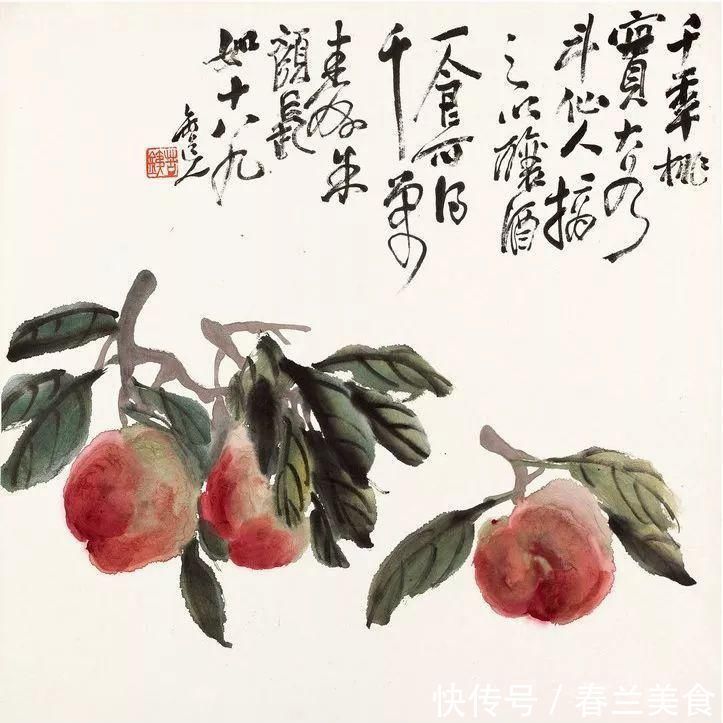 千年桃
實大如
斗仙人摘
之以釀酒
一食可得
千萬
壽朱
顏長
如十八九
苦銕
快传号 / 春兰美食